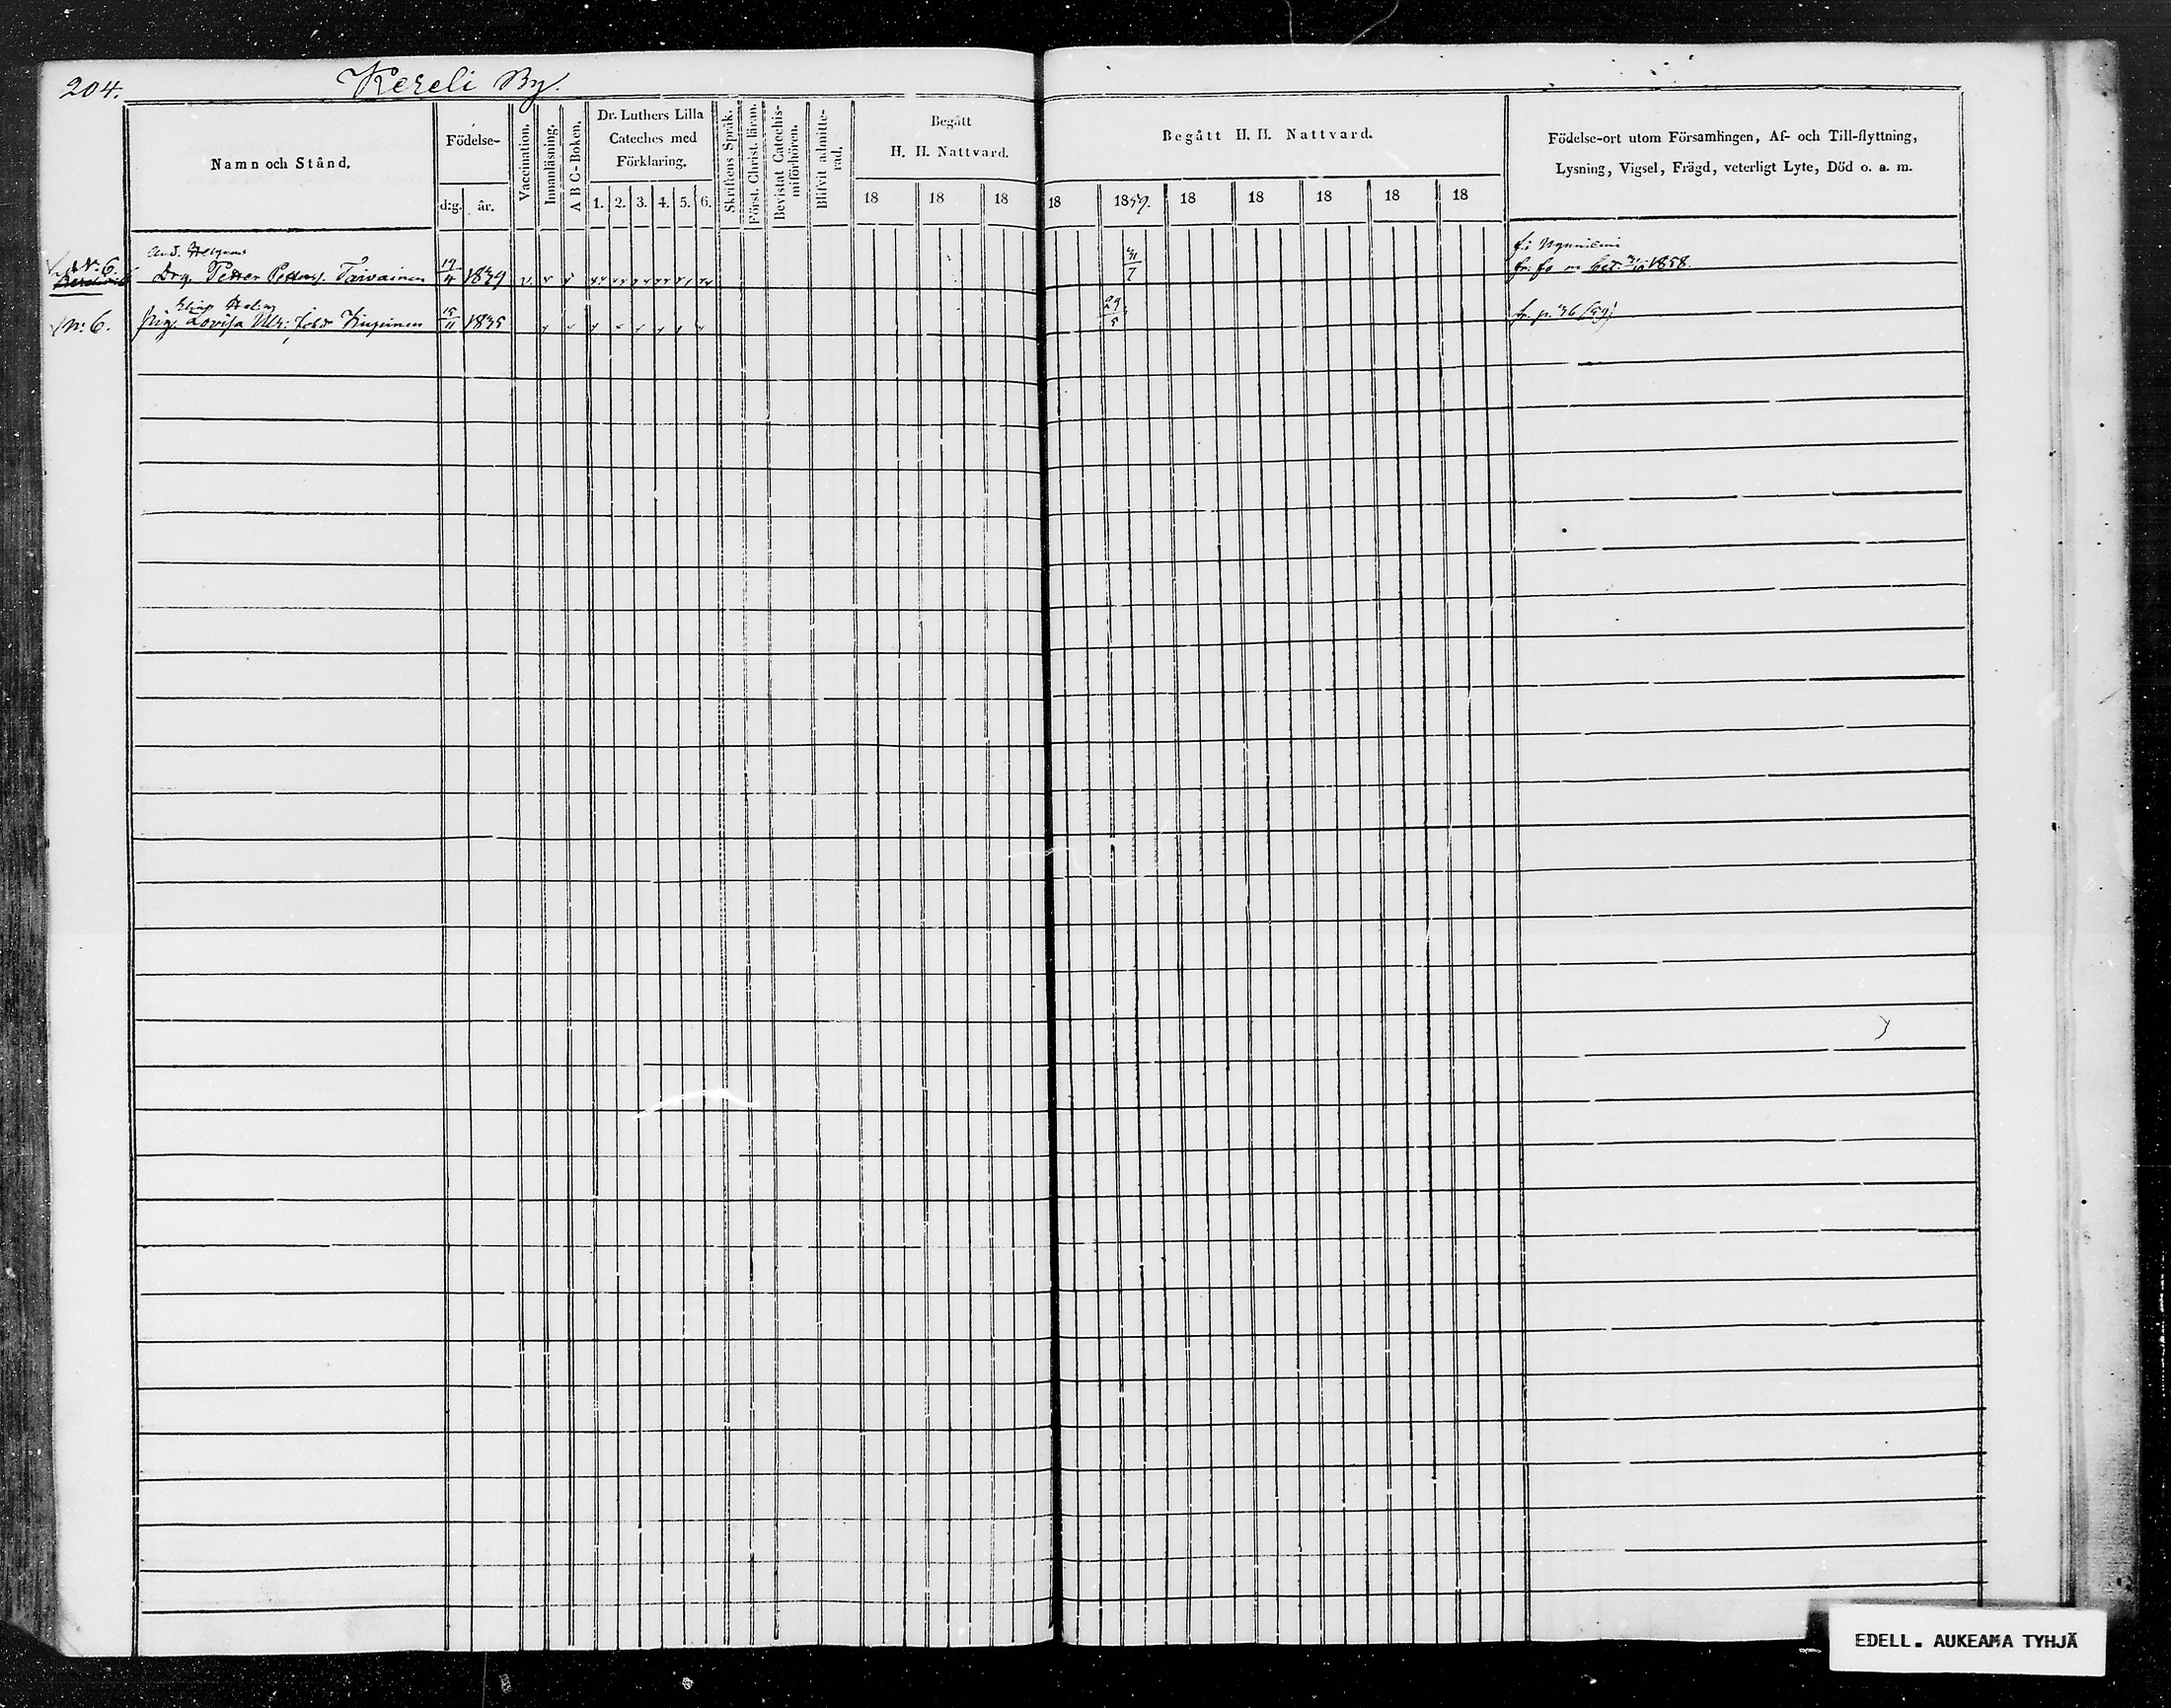 204.
Kereli By.
Namn och Stånd.
Födelse-
d:g.
år.
Vaccination.
Innanläsning.
A B C-Boken.
Dr. Luthers Lilla
Cateches med
Förklaring.
1. 2. 3. 4. 5. 6.
Skriftens Språk.
Först. Christ. läran.
Bevistat Catechis-
miförhören.
Blifvit admitte-
rad.
Begått
H. H. Nattvard.
18 18 18
Begått H. H. Nattvard.
18 1859. 18 18 18 18 18
Födelse-ort utom Församlingen, Af- och Till-flyttning,
Lysning, Vigsel, Frägd, veterligt Lyte, Död o. a. m.
And.
f. i
N:o 6.
Drg. Petter Petterss. Taivainen 19/4 1839 31/7 fr. 1858.
Helen
N:o 6. Pig. Lovisa Kupinen 15/11 1835 29/5 fr. p. 36 (59)
EDELL. AUKEAMA TYHJÄ